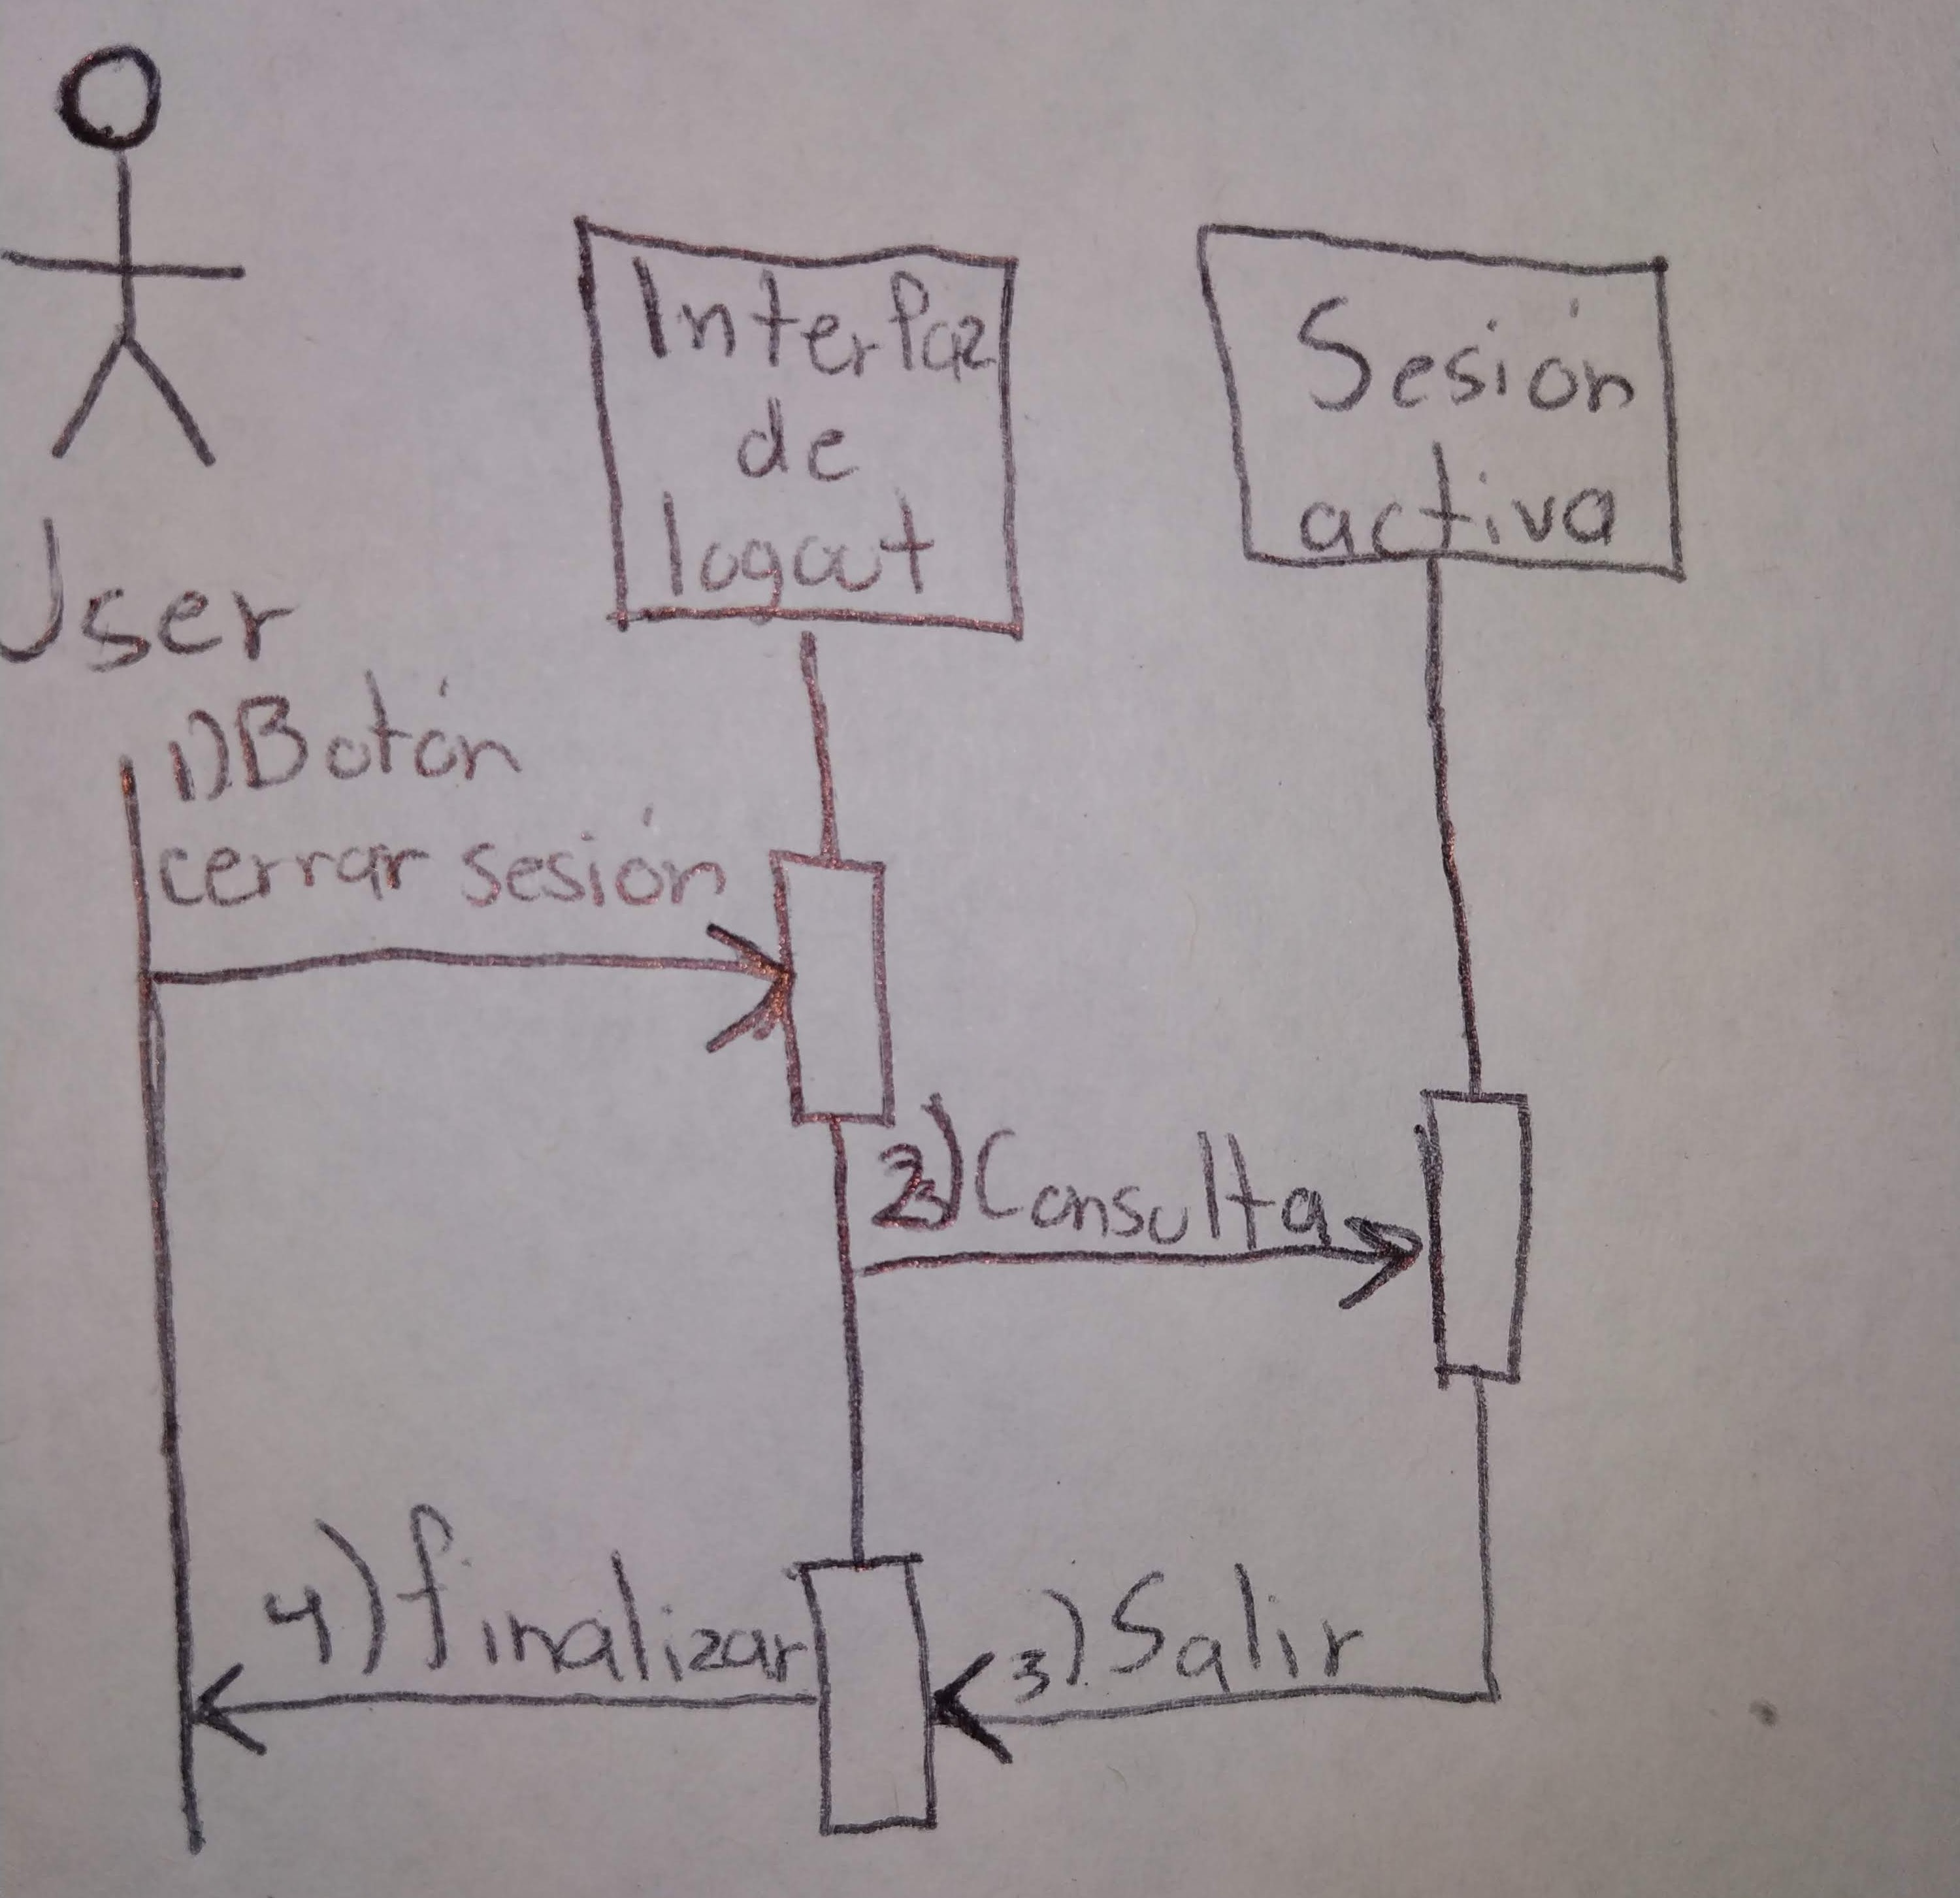 User
Interfaz
de
logout
Sesión
activa
1) Botón
cerrar sesión
2) Consulta
3) Salir
4) finalizar